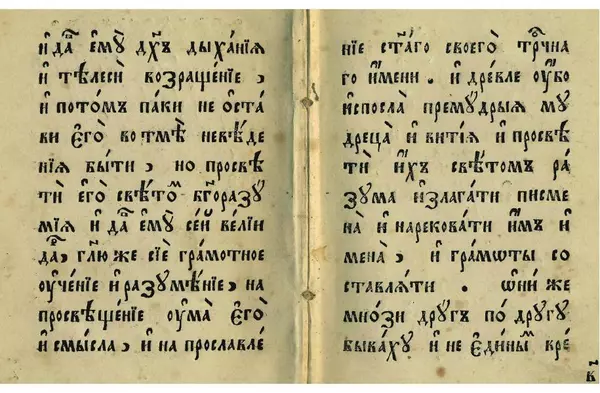 и҆ да́ ємꙋ̀ дх҃ъ дыха́нїѧ
и҆ тѣлесѝ возращенїе,
и҆ пото́мъ па́ки не ѻ҆ста
ви є҆го̀ во тмѣ̀ невѣ́де
нїѧ бы́ти, но просвѣ
тѝ є҆го̀ свѣ́томъ бг҃оразꙋ
мїѧ и҆ да́ ємꙋ̀ се́й ве́лїи
да́ръ, гл҃ю же сїѐ гра́мотное
оу҆че́нїе и҆ разꙋмѣ́нїе, на
просвѣще́нїе оу҆ма̀ є҆гѡ̀
и҆ смы́сла, и҆ на прославле́
нїе ст҃а́го своегѡ̀ трⷪ҇чна
го и҆́мени. и҆ дре́вле оу҆́бо
и҆спосла̀ премꙋ́дрыѧ мꙋ
дреца̀ и҆ вити́ѧ и҆ просвѣ
тѝ и҆́хъ свѣ́томъ ра́
зꙋма и҆злага́ти писме
на̀ и҆ нарекова́ти и҆̀мъ и҆
мена̀, и҆ гра́мѡты со
ставлѧ́ти. ѻ҆ни́ же
мно́зи дрꙋ́гъ по дрꙋ́гꙋ
быва́хꙋ и҆ не є҆ди́ным кре́